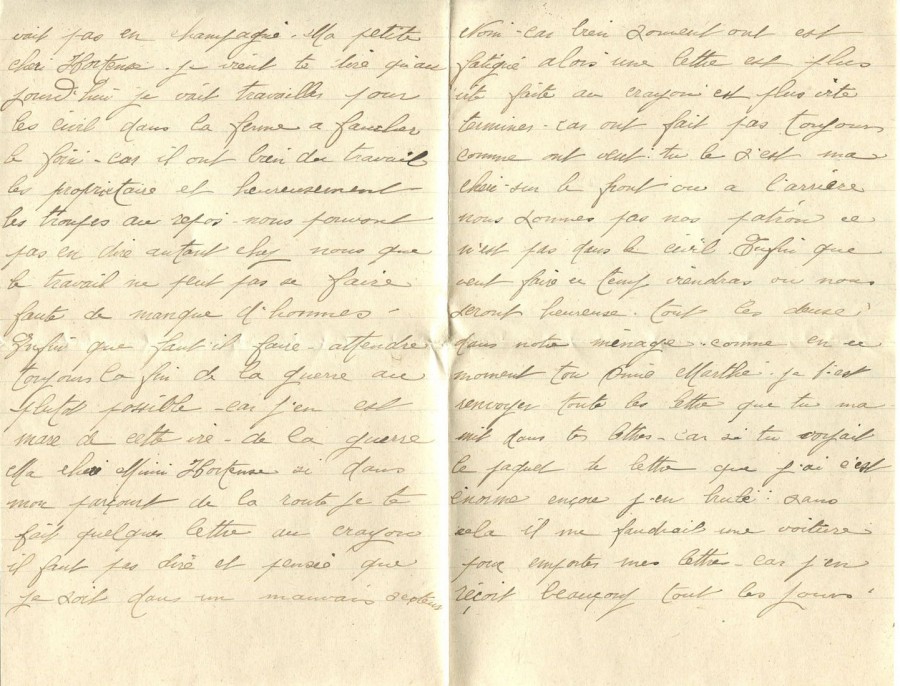 vait pas en champagne. Ma petite
cheri Hortense. je vient te dire qu'au
jourd'hui je vait travailler pour
les civil dans la ferme a faucher
le foin - car il ont bien du travail
les proprietaire et heureusement
les troupes au repos - nous pouvont
pas en dire autant chez nous que
le travail ne peut pas se faire
faute de manque d'hommes.
Enfin que faut-il faire - attendre
toujours la fin de la guerre au
plutôt possible - car j'en est
mare de cette vie - de la guerre
Ma cheri Mimi Hortense si dans
mon parcourt de la route je te
fait quelques lettre au crayon
il faut pas dire et pensée que
je soit dans un mauvais secteur
Non - car bien souvent ont est
fatigué alors une lettre est plus
vite faite au crayon est plus vite
terminer - car ont fait pas toujours
comme ont veut. tu le s'est ma
cheri - sur le front ou a l'arrière
nous sonnes pas nos patron ce
n'est pas dans le civil. Enfin que
veut faire un temp viendras ou nous
seront heureuse. tout les deux
dans notre ménage - comme en ce
moment ton amie Marthe. je t'est
renvoyer toute les lettre que tu ma
mit dans tes lettres - car si tu voyait
le paquet de lettre que j'ai c'est
énorme encore j'en brulé: sans
cela il me faudrait une voiture
pour emporter mes lettre - car j'en
reçoit beaucoup tout les jours.